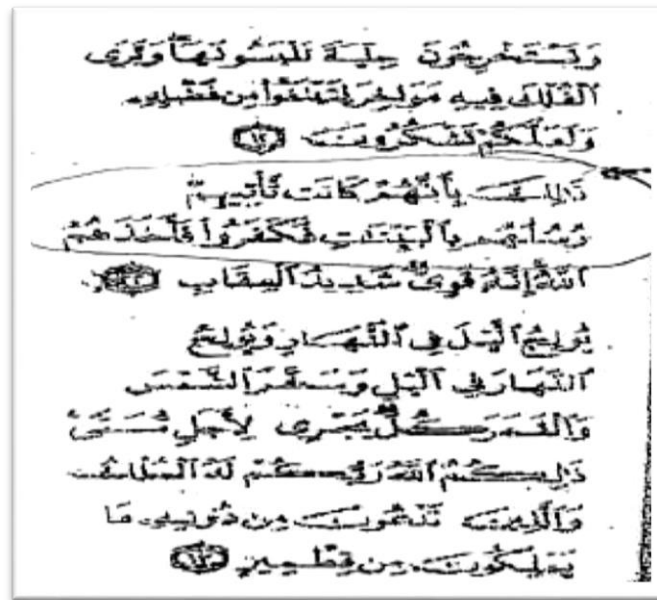 وَتَسْتَخْرِجُونَ حِلْيَةً تَلْبَسُونَهَا وَتَرَى
ٱلْفُلْكَ فِيهِ مَوَاخِرَ لِتَبْتَغُوا۟ مِن فَضْلِهِۦ
وَلَعَلَّكُمْ تَشْكُرُونَ ١٢
ذَٰلِكَ بِأَنَّهُمْ كَانَت تَّأْتِيهِمْ
رُسُلُهُم بِٱلْبَيِّنَٰتِ فَكَفَرُوا۟ فَأَخَذَهُمُ
ٱللَّهُ إِنَّهُۥ قَوِىٌّ شَدِيدُ ٱلْعِقَابِ ٢٢
يُولِجُ ٱلَّيْلَ فِى ٱلنَّهَارِ وَيُولِجُ
ٱلنَّهَارَ فِى ٱلَّيْلِ وَسَخَّرَ ٱلشَّمْسَ
وَٱلْقَمَرَ كُلٌّ يَجْرِى لِأَجَلٍ مُّسَمًّى
ذَٰلِكُمُ ٱللَّهُ رَبُّكُمْ لَهُ ٱلْمُلْكُ
وَٱلَّذِينَ تَدْعُونَ مِن دُونِهِۦ مَا
يَمْلِكُونَ مِن قِطْمِيرٍ ١٣